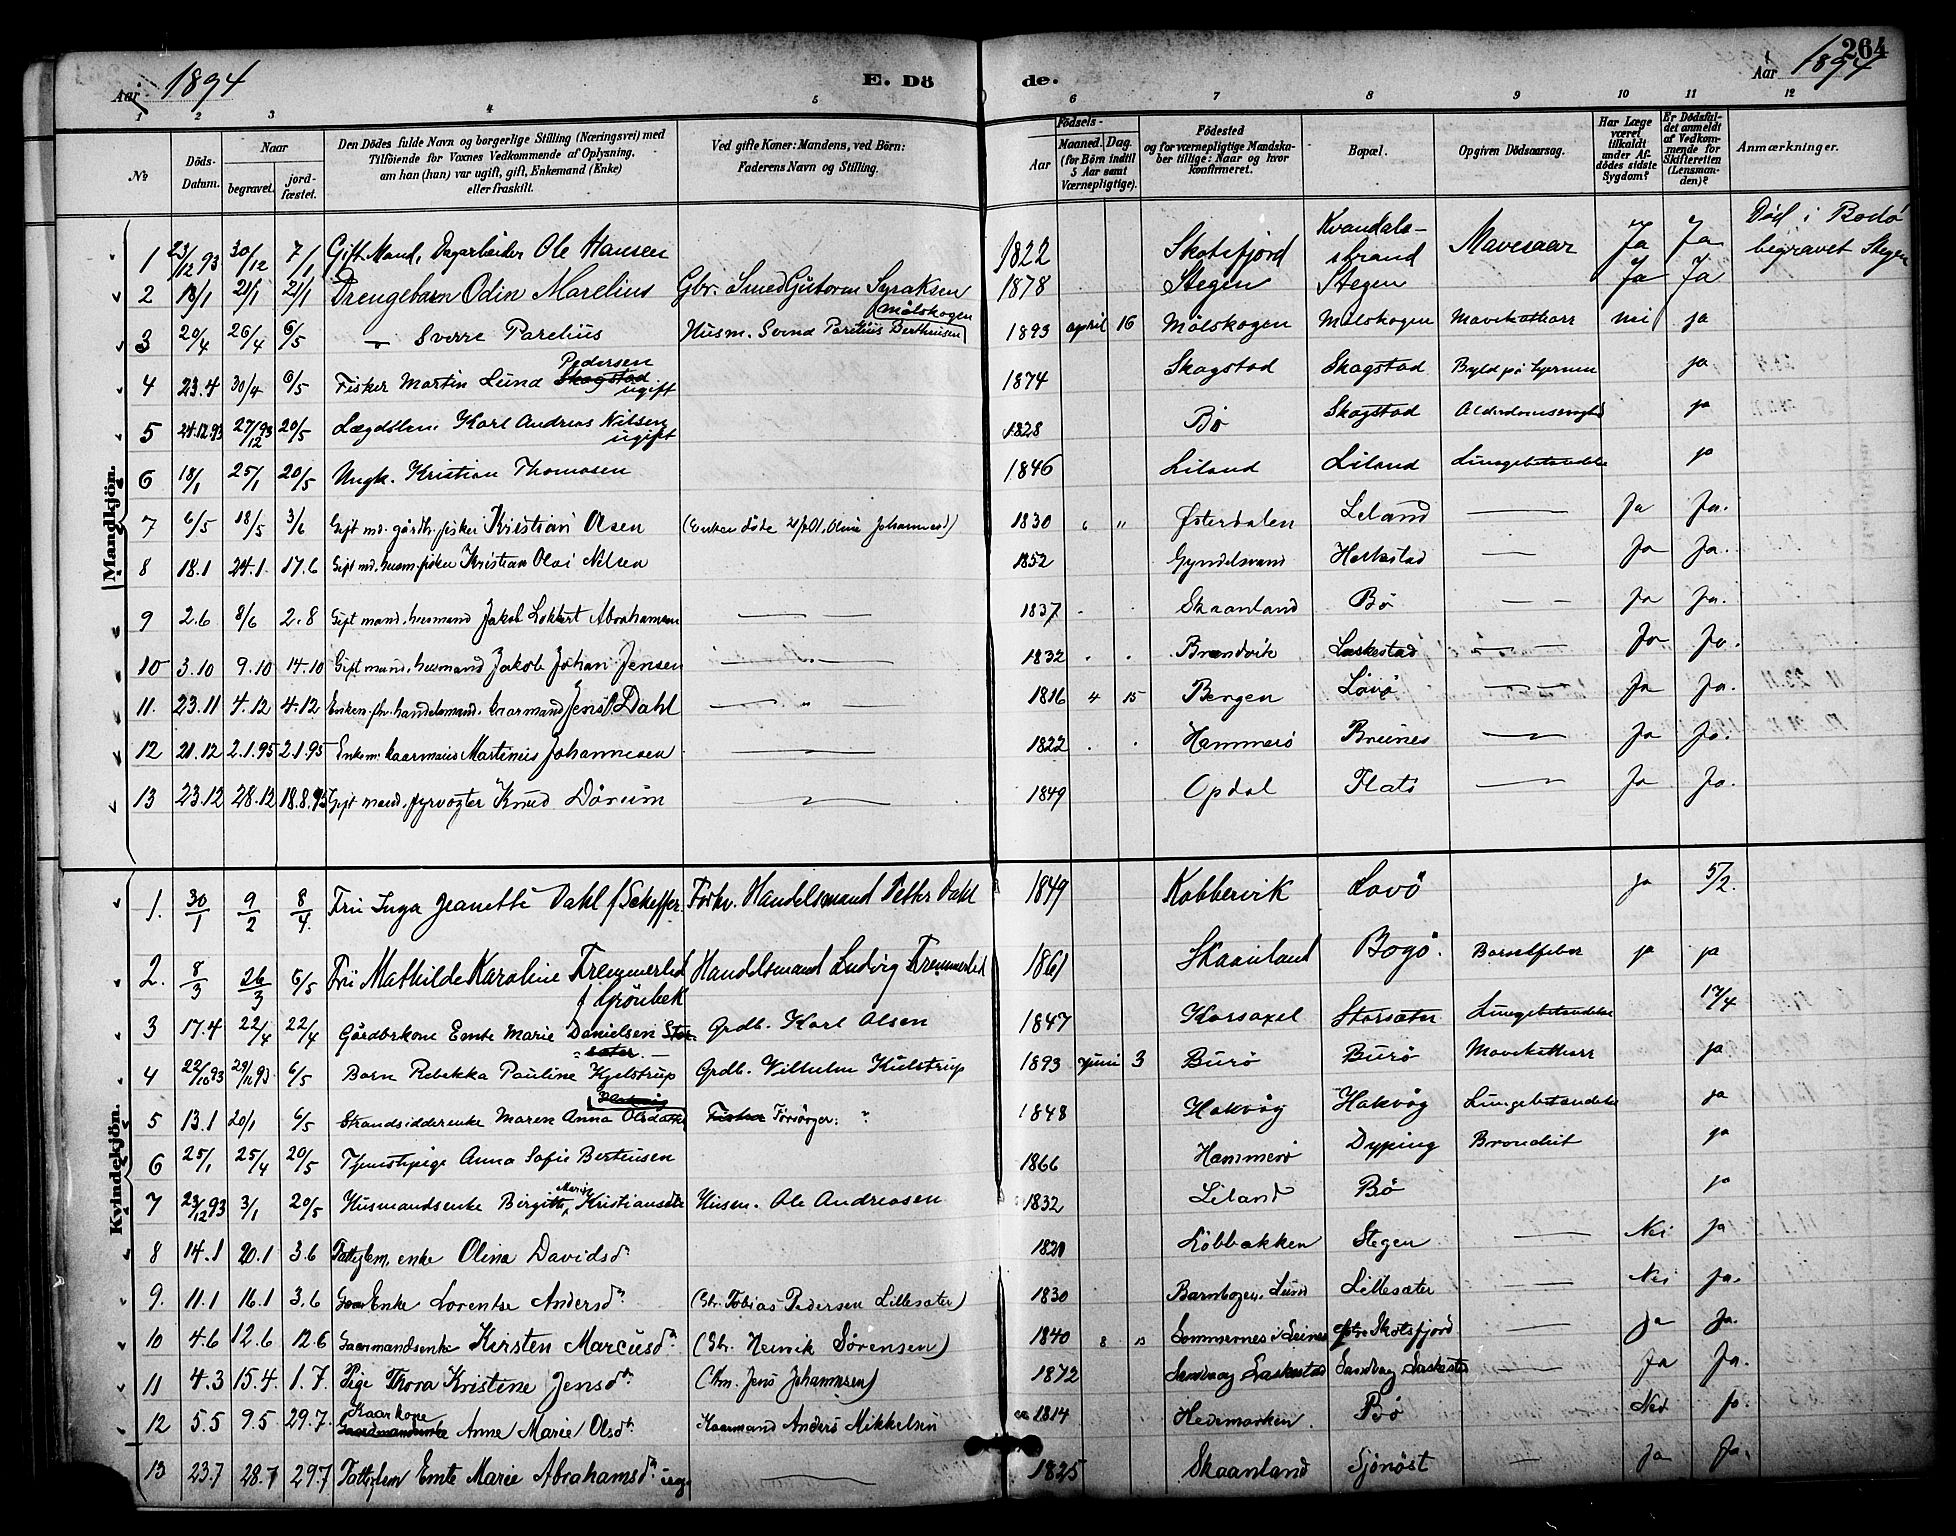 264
Aar 1894
E. Döde.
Aar 1894
1 2 3 4 5 6 7 8 9 10 11 12
No
Döds-Datum.
Naar
begravet.
jordfæstet.
Den Dödes fulde Navn og borgerlige Stilling (Næringsvei) med Tilföiende for Voxnes Vedkommende af Oplysning, om han (hun) var ugift, gift, Enkemand (Enke) eller fraskilt.
Ved gifte Koner: Mandens, ved Börn: Faderens Navn og Stilling.
Födsels-
Aar
Maaned. Dag.
(for Börn indtil 5 Aar samt Værnepligtige).
Födested og for værnepligtige Mandskaber tillige: Naar og hvor konfirmeret.
Bopæl.
Opgiven Dödsaarsag.
Har Læge været tilkaldt under Afdödes sidste Sygdom?
Er Dödsfaldet anmeldt af Vedkommende for Skifteretten (Lensmanden)?
Anmærkninger.
Mandkjön.
1 23/12 93 30/12 7/1 Gift Mand, Dagarbeider Ole Hansen 1822 Skotsfjord Kvandalsstrand Mavesaar Ja Ja Död i Bodö begravet Stegen
2 18/1 21/1 21/1 Drengebarn Odin Marelius Gbr. Smed Gustorm Syraksen 1878 Stegen Stegen Ja Ja
3 20/4 26/4 6/5 " Sverre Parelius Husm. Svend Parelius Bertheusen Mölskogen 1893 april 16 Mölskogen Mölskogen Mavekatharr nei ja
4 23.4 30/4 6/5 Fisker Martin Lund Pedersen Skagstad ugift 1874 Skagstad Skagstad Byld på hjernen ja
5 24.12.93 27/12 93 20/5 Lægdslem Karl Andreas Nilsen ugift 1828 Bö Skagstad Alderdomssvaghed ja
6 18/1 25/1 20/5 Ungk. Kristian Thomasen 1846 Liland Liland Lungebetændelse ja
7 6/5 18/5 3/6 Gift md. gårdbr. fisker Kristian Olsen (Enken döde Olina Johannesd) 1830 Østerdalen Leland Ja Ja.
8 18.1 24.1. 17.6 Gift md. husm. fisker Kristian Olai Nilsen 1852 Gyndelsvand Horkestad Ja Ja.
9 2.6 8/6 2.8 Gift mand. husmand Jakob Lokkert Abrahamsen 1837 Skaanland Bö Ja Ja.
10 3.10 9.10 14.10 Gift mand. husmand Jakob Johan Jensen 1832 Brandvik Laskestad Ja Ja.
11. 23.11 4.12 4.12 Enkem. fhv. handelsmand. Jens Dahl 1816 4 15 Bergen Lövö Ja Ja.
12 21.12 2.1.95 2.1.95 Enkem. kaarmand Martinus Johannesen 1822 Hammerö Breines Ja Ja.
13 23.12 28.12 18.8.95 Gift mand. fyrvogter Knud Dörum 1849 Opdal Flatö Ja Ja.
Kvindekjön.
1. 30/1 9/2 8/4 Fru Inga Jeanette Dahl f. Scheffer Forhv. Handelsmand Petter Dahl 1849 Kobbervik Lovö ja 5/2.
2. 8/3 26/3 6/5 Fru Mathilde Karoline Tremmerlid f. Grönbek Handelsmand Ludvig Tremmerlid 1861 Skaanland Bogö. Barselfeber ja ja
3 17.4 22/4 22/4 Gårdbrkone Emte Marie Danielsen Storsæter Grdb. Karl Olsen 1847 Korsaxel Storsæter Lungebetændelse 17/4
4 22/10 93 29/10 93 6/5 Barn Rebekka Pauline Kjelstrup Grdb. Vilhelm Kulstrup 1893 juni 3 Burö Burö Mavekatharr ja
5 13.1 20/1 6/5 Strandsidderenke Maren Anna Olsdatter Fisker Forsörger: " 1848 Hakvåg Hakvåg Lungebetændelse ja
6 25/1 25/4 20/5 Tjenestepige Anna Sofie Berteusen 1866 Hammerö Dyping Bronchit ja
7 23/12 93 3/1 20/5 Husmandsenke Birgitte Marie Kristiansdtr Husm. Ole Andreasen 1832 Leland Bö ja
8 14.1 20.1 3.6 Fattiglem, enke Olina Davidsdr 1821 Löbbakken Stegen Nei Ja
9. 11.1 16.1 3.6 Enke Lorentse Andersdr (Gbr. Tobias Pedersen Lillesæter) 1830 Lillesæter Nei Ja.
10 4.6 12.6 12.6 Gaarmandsenke Kirsten Marcusdr (Gbr. Henrik Sörensen) 1840 8 Lommernes i Leines Skotsfjord Ja Ja.
11 4.3 15.4. 1.7. Pige Thora Kristine Jensdr (Hm. Jens Johannsen) 1872 Sandvaag Laskestad Sandvag Laskestad Ja Ja.
12 5.5 9.5 29.7. Gaardmandsenke Kaarkone Anne Marie Olsdr Kaarmand Anders Mikkelsen ca 1814 Hedemarken. Bö Nei Ja
13 23.7 28.7 29.7 Fattiglem Emte Marie Abrahamsdr ugi 1825 Skaanland Sjönöst Ja Ja.